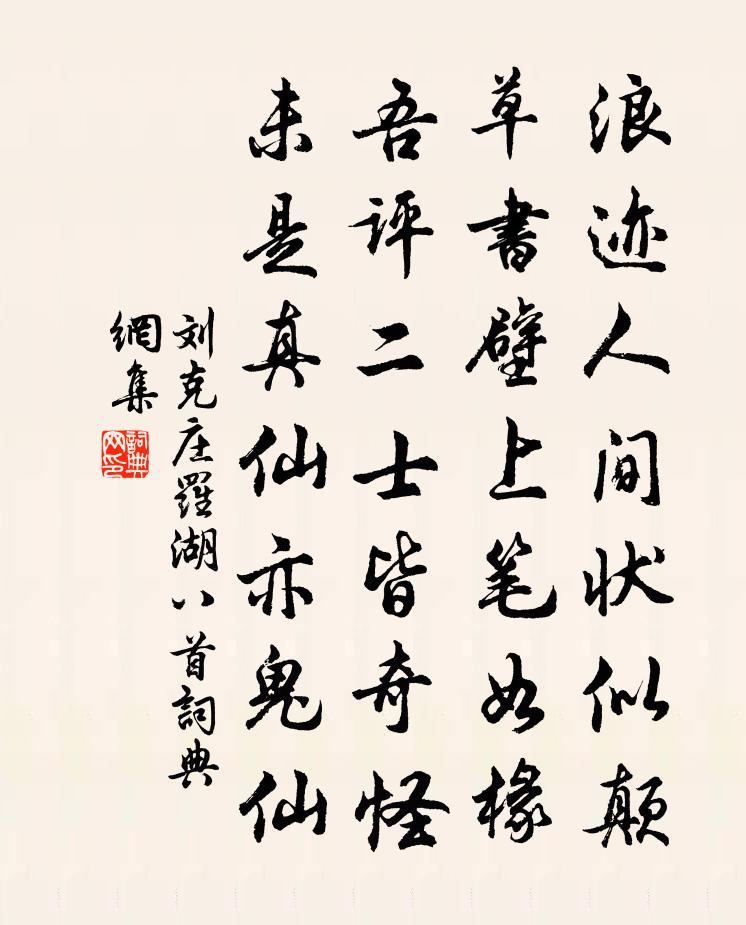 浪迹人间状似颠
草書壁上笔如椽
吾评二士皆奇怪
未是真仙亦鬼仙
刘克庄羅湖八首詞典
網集
詞典
网印